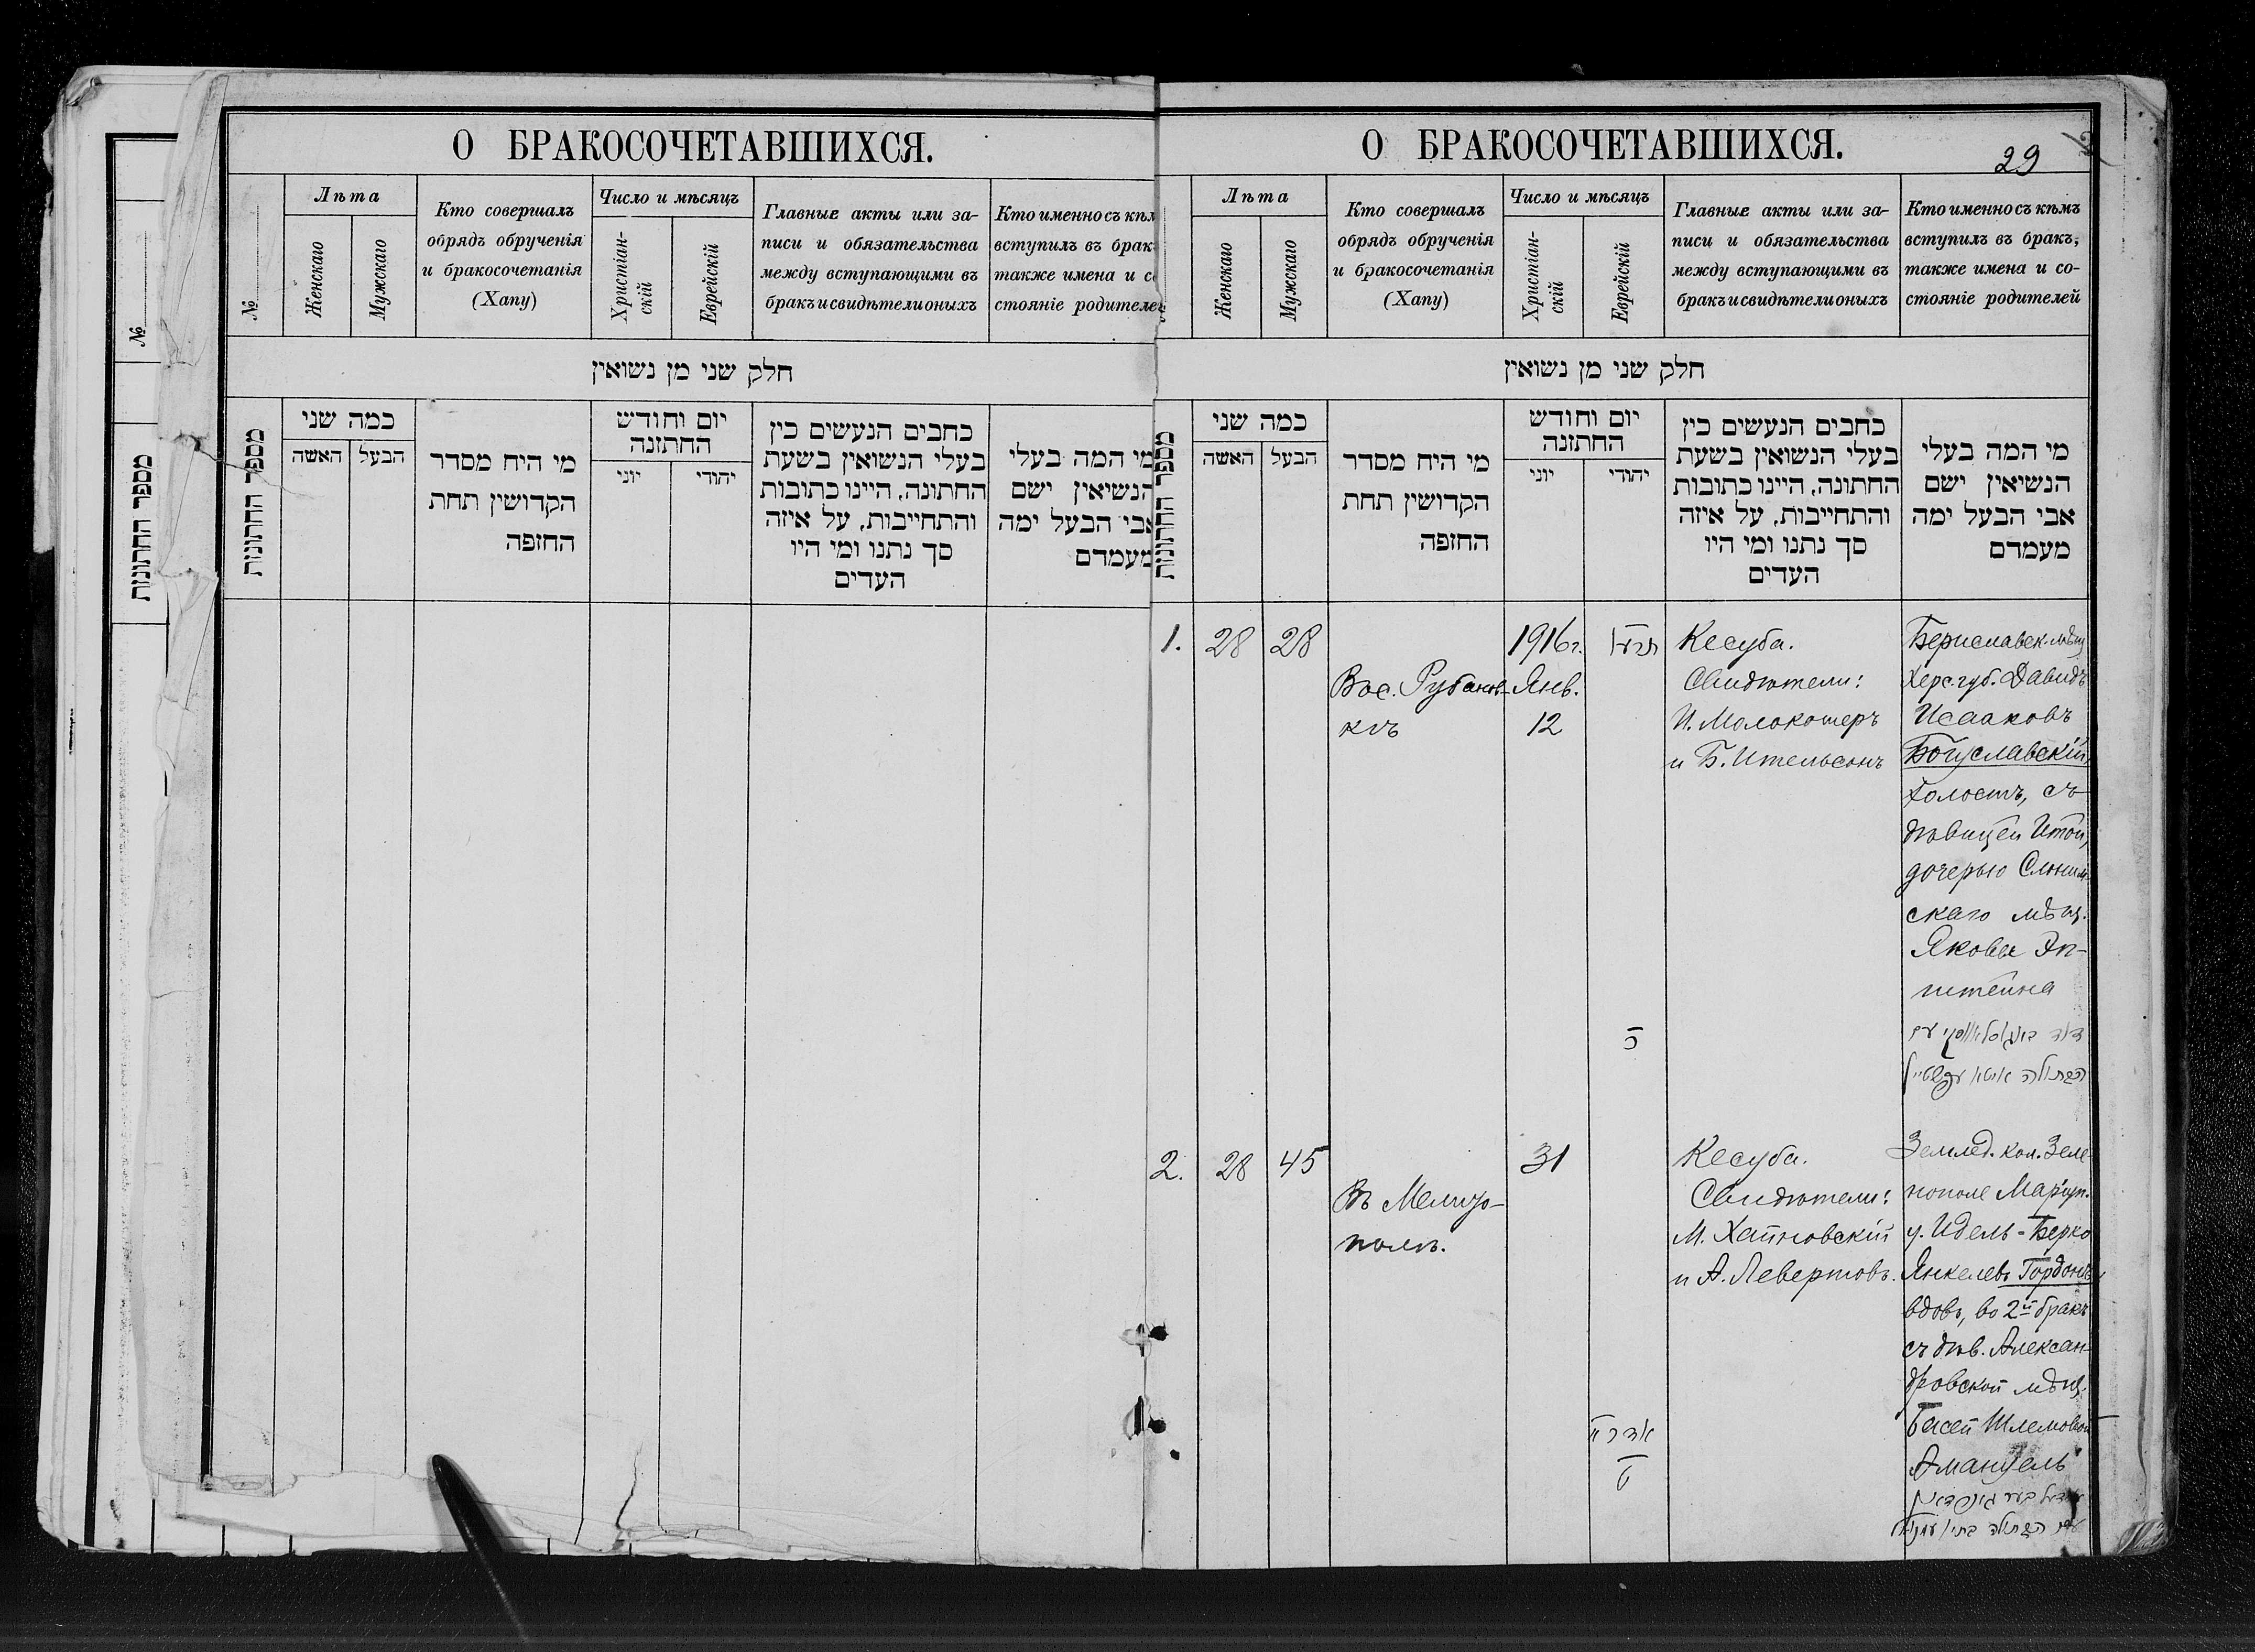 О БРАКОСОЧЕТАВШИХСЯ.
№
Лѣта
Женскаго
Мужскаго
Кто совершалъ
обрядъ обрученія
и бракосочетанія
(Хапу)
Число и мѣсяцъ
Христіан-
скій
Еврейскій
Главные акты или за-
писи и обязательства
между вступающими въ
бракъ и свидѣтели оныхъ
Кто именно съ кѣм
вступилъ въ брак
также имена и с
стояніе родителе
חלק שני מן נשואין
מספר החתונות
כמה שני
האשה
הבעל
מי היח מסדר
הקדושין תחת
החופה
יום וחודש
החתונה
יוני
יהודי
כתבים הנעשים כין
בעלי הנשואין בשעת
החתונה, היינו כתובות
והתחייבות, על איזה
סך נתנו ומי היו
העדים
מי המה בעלי
הנשיאין ישם
אבי הבעל ימה
מעמדם
№
מספר החתונות
О БРАКОСОЧЕТАВШИХСЯ.
29
Лѣта
Женскаго
Мужскаго
Кто совершалъ
обрядъ обрученія
и бракосочетанія
(Хапу)
Число и мѣсяцъ
Христіан-
скій
Еврейскій
Главные акты или за-
писи и обязательства
между вступающими въ
бракъ и свидѣтели оныхъ
Кто именно съ кѣмъ
вступилъ въ бракъ,
также имена и со-
стояніе родителей
חלק שני מן נשואין
מספר החתונות
כמה שני
האשה
הבעל
מי היח מסדר
הקדושין תחת
החופה
יום וחודש
החתונה
יוני
יהודי
כתבים הנעשים כין
בעלי הנשואין בשעת
החתונה, היינו כתובות
והתחייבות, על איזה
סך נתנו ומי היו
העדים
מי המה בעלי
הנשיאין ישם
אבי הבעל ימה
מעמדם
1.
28
28
Въ с. Рубанов-
кѣ
1916 г.
Янв.
12
Кесуба.
Свидѣтели:
И. Молокотеръ
и Б. Ительсонъ
Бериславск. мѣщ
Херс. губ. Давидъ
Исааковъ
Богуславскій,
холостъ, съ
дѣвицей Итой,
дочерью Слоним-
скаго мѣщ.
Якова Эп-
штейна
הבתולה איטא עפשטיין
2.
28
45
Въ Мелито-
полѣ.
31
Кесуба.
Свидѣтели:
М. Хайновскій
и А. Левертовъ.
Землед. кол. Зеле-
нополе Маріуп.
у. Идель-Берко
Янкелевъ Гордонъ
вдовъ, во 2й бракъ
съ дѣв. Алексан-
дровской мѣщ.
Басей Шлемовой
Амануель